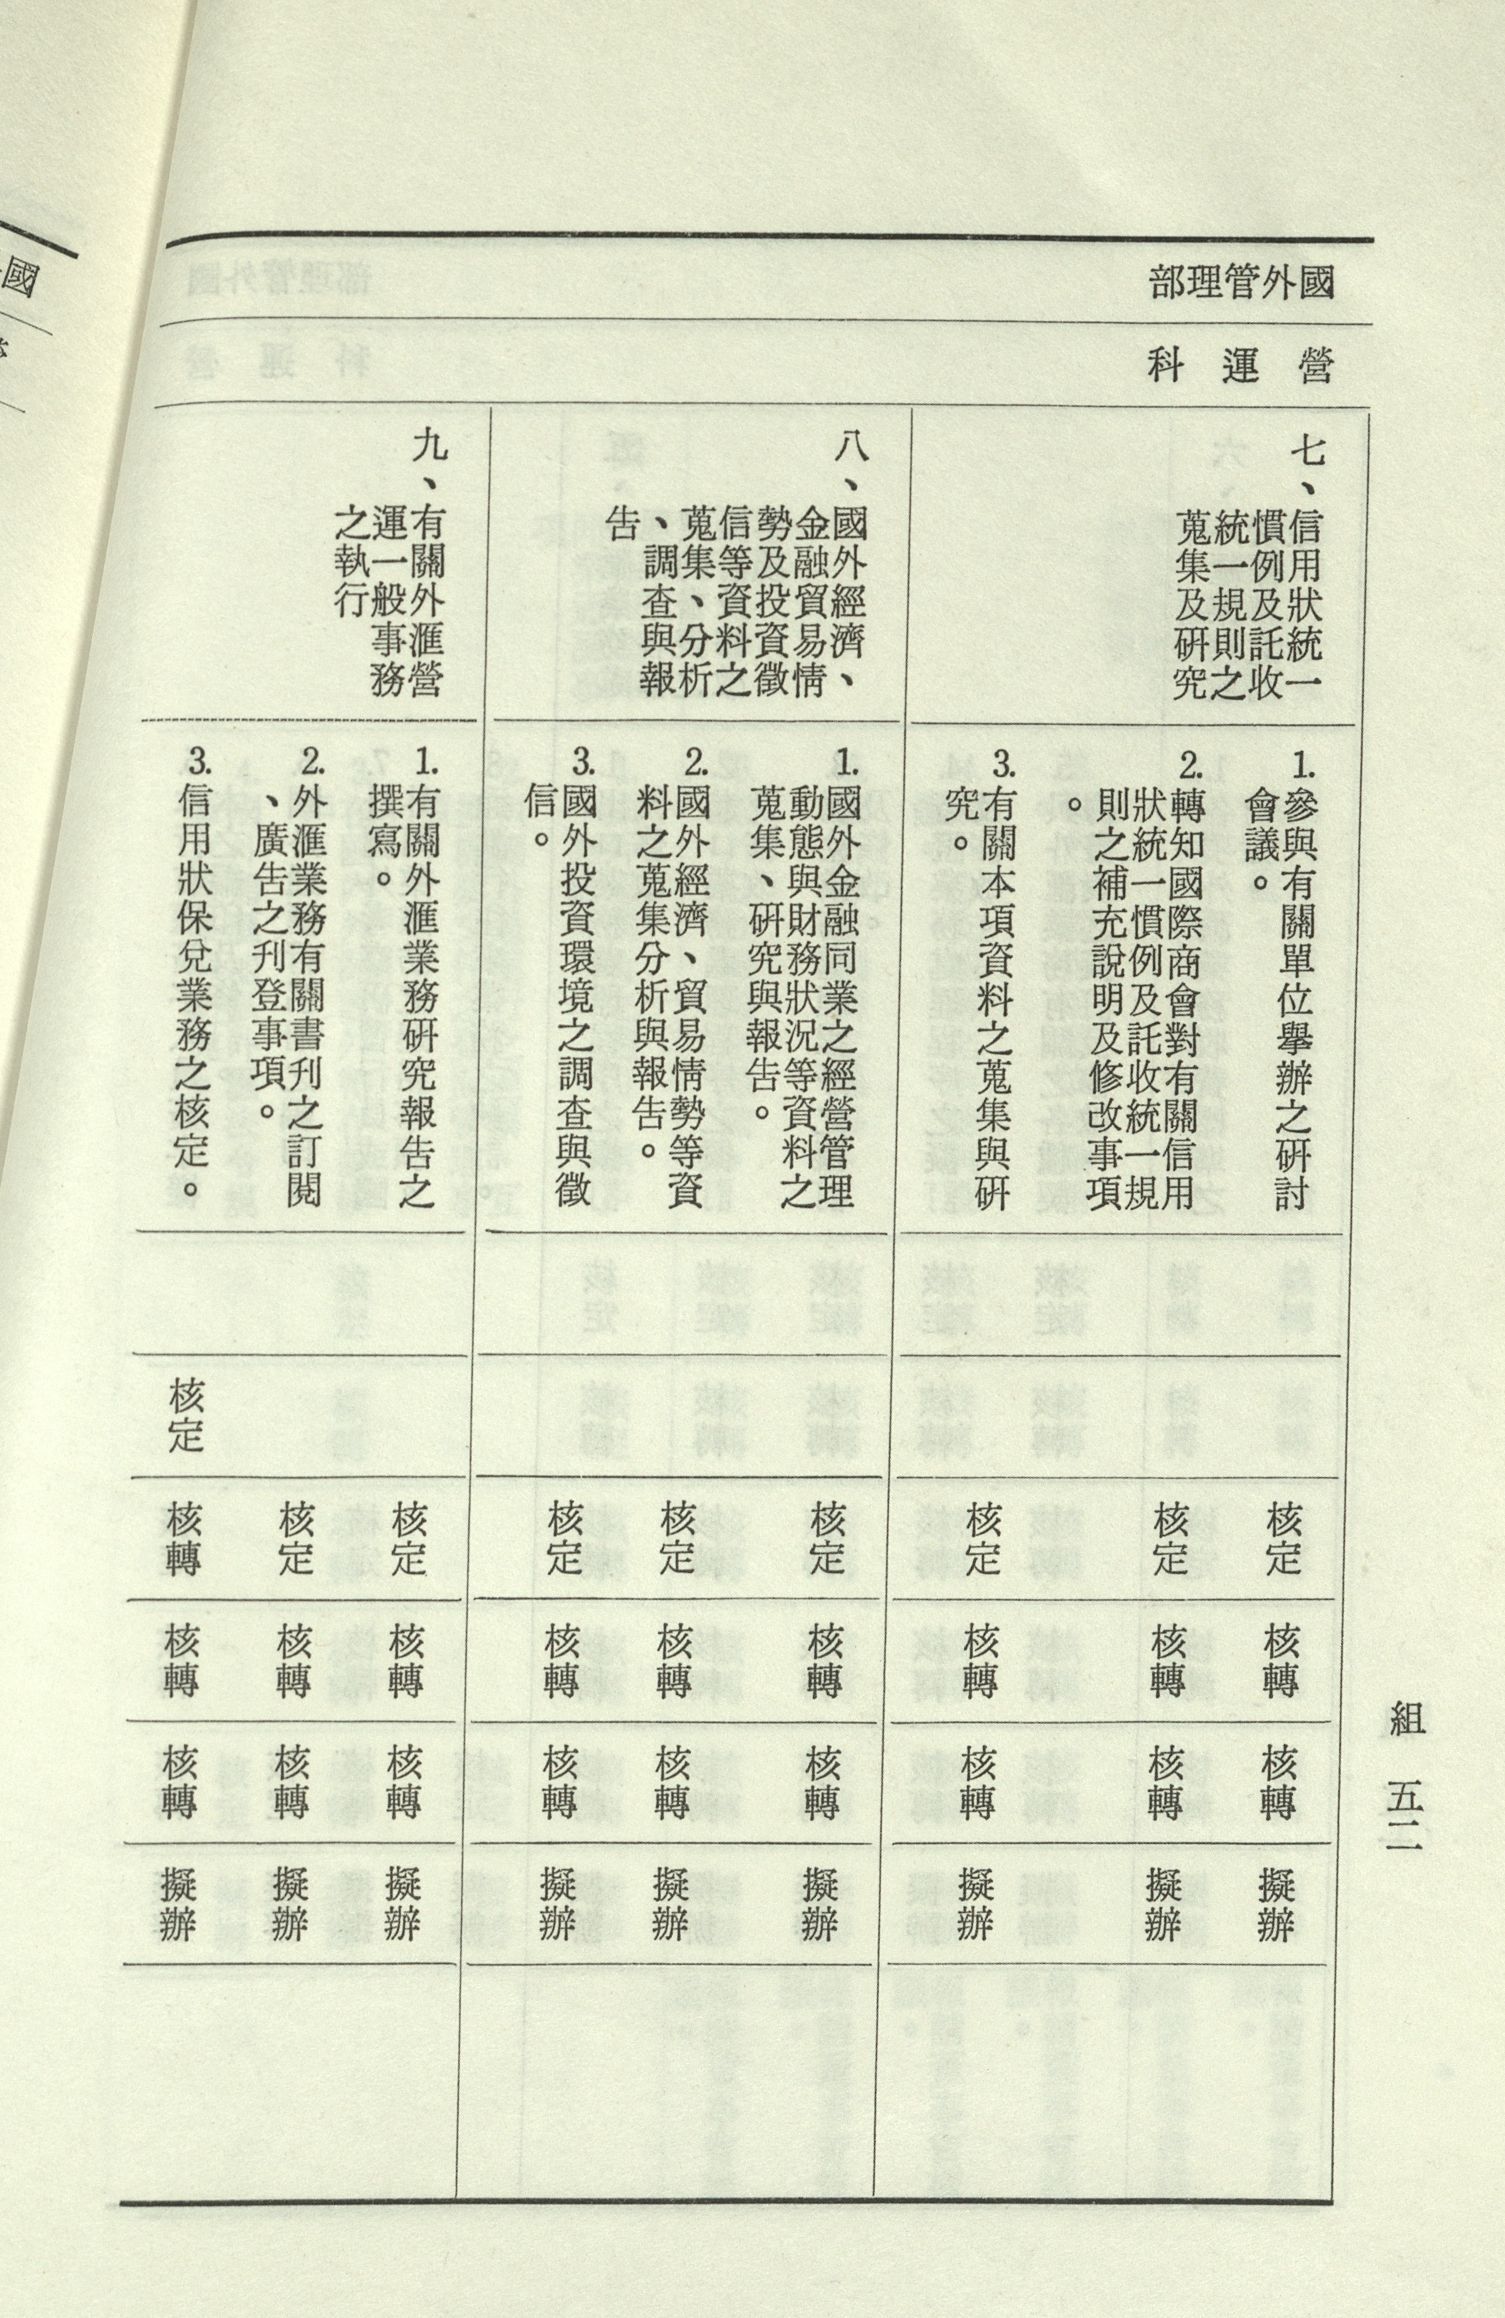 國外管理部
營運科
七、信用狀統一
慣例及託收
統一規則之
蒐集及研究
1.參與有關單位舉辦之研討
會議。
2.轉知國際商會對有關信用
狀統一慣例及託收統一規
則之補充說明及修改事項
。
3.有關本項資料之蒐集與研
究。
核定
核定
核定
核轉
核轉
核轉
核轉
核轉
核轉
擬辦
擬辦
擬辦
八、國外經濟、
金融貿易情
勢及投資徵
信等資料之
蒐集、分析
、調查與報
告
1.國外金融同業之經營管理
動態與財務狀況等資料之
蒐集、研究與報告。
2.國外經濟、貿易情勢等資
料之蒐集分析與報告。
3.國外投資環境之調查與徵
信。
核定
核定
核定
核轉
核轉
核轉
核轉
核轉
核轉
擬辦
擬辦
擬辦
九、有關外滙營
運一般事務
之執行
1.有關外滙業務研究報告之
撰寫。
2.外滙業務有關書刊之訂閱
、廣告之刊登事項。
3.信用狀保兌業務之核定。
核定
核定
核定
核轉
核轉
核轉
核轉
核轉
核轉
核轉
擬辦
擬辦
擬辦
組 五二
國